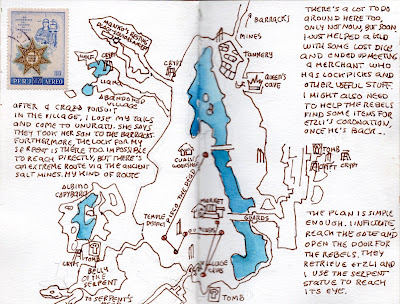 THERE'S A LOT TO DO
AROUND HERE TOO,
ONLY NOT NOW, BUT SOON
I JUST HELPED A KID
WITH SOME LOST DICE
AND ENDED UP MEETING
A MERCHANT WHO
HAS LOCKPICKS AND
OTHER USEFUL STUFF.
I MIGHT ALSO NEED
TO HELP THE REBELS
FIND SOME ITEMS FOR
ETZLI'S CORONATION,
ONCE HE'S BACK...
BARRACKS
MINES
TANNERY
QUEEN'S
COVE
CRYPT
CRYPT
LLAMAS
ABANDONED
VILLAGE
PERU
AEREO
AFTER A CRAZY PURSUIT
IN THE VILLAGE, I LOSE MY TAILS
AND COME TO UNURATU. SHE SAYS
THEY TOOK HER SON TO THE BARRACKS.
FURTHERMORE, THE LOCK FOR MY
SERPENT IS THERE TOO. IMPOSSIBLE
TO REACH DIRECTLY, BUT THERE'S
AN EXTREME ROUTE VIA THE ANCIENT
SALT MINES. MY KIND OF ROUTE
ALBINO
CAPYBARA
TEMPLE
DISTRICT
MARKET
GUARDS
TOMB
CRYPT
TOMB
CRYPT
TOMB
BELLY
OF THE
SERPENT
TO SERPENT'S
TOMB
THE PLAN IS SIMPLE
ENOUGH. I INFILTRATE,
REACH THE GATE AND
OPEN THE DOOR FOR
THE REBELS. THEY
RETRIEVE ETZLI AND
I USE THE SERPENT
STATUE TO REACH
ITS EYE.